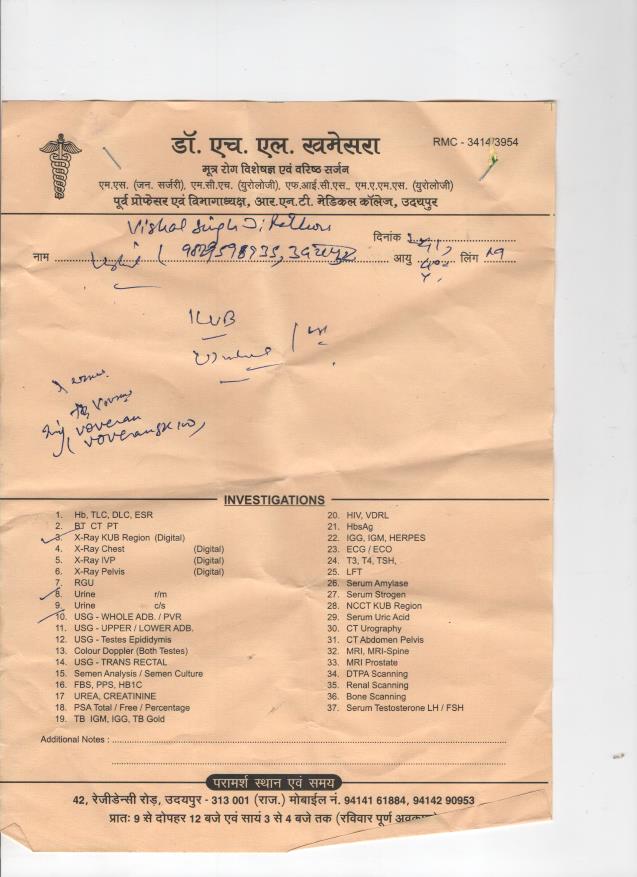 डॉ. एच. एल. खमेसरा
RMC - 3414/3954
मूत्र रोग विशेषज्ञ एवं वरिष्ठ सर्जन
एम.एस. (जन. सर्जरी), एम.सी.एच. (युरोलोजी), एफ.आई.सी.एस., एम.ए.एम.एस. (युरोलोजी)
पूर्व प्रोफेसर एवं विभागाध्यक्ष, आर.एन.टी. मेडिकल कॉलेज, उदयपुर
Vishal Singh
दिनांक
नाम उदयपुर आयु लिंग M
KUB
voveran
voveran
INVESTIGATIONS
1. Hb, TLC, DLC, ESR
2. BT CT PT
3. X-Ray KUB Region (Digital)
4. X-Ray Chest (Digital)
5. X-Ray IVP (Digital)
6. X-Ray Pelvis (Digital)
7. RGU
8. Urine r/m
9. Urine c/s
10. USG - WHOLE ADB. / PVR
11. USG - UPPER / LOWER ADB.
12. USG - Testes Epididymis
13. Colour Doppler (Both Testes)
14. USG - TRANS RECTAL
15. Semen Analysis / Semen Culture
16. FBS, PPS, HB1C
17 UREA, CREATININE
18. PSA Total / Free / Percentage
19. TB IGM, IGG, TB Gold
20. HIV, VDRL
21. HbsAg
22. IGG, IGM, HERPES
23. ECG / ECO
24. T3, T4, TSH,
25. LFT
26. Serum Amylase
27. Serum Strogen
28. NCCT KUB Region
29. Serum Uric Acid
30. CT Urography
31. CT Abdomen Pelvis
32. MRI, MRI-Spine
33. MRI Prostate
34. DTPA Scanning
35. Renal Scanning
36. Bone Scanning
37. Serum Testosterone LH / FSH
Additional Notes :
परामर्श स्थान एवं समय
42, रेजीडेन्सी रोड़, उदयपुर - 313 001 (राज.) मोबाईल नं. 94141 61884, 94142 90953
प्रातः 9 से दोपहर 12 बजे एवं सायं 3 से 4 बजे तक (रविवार पूर्ण